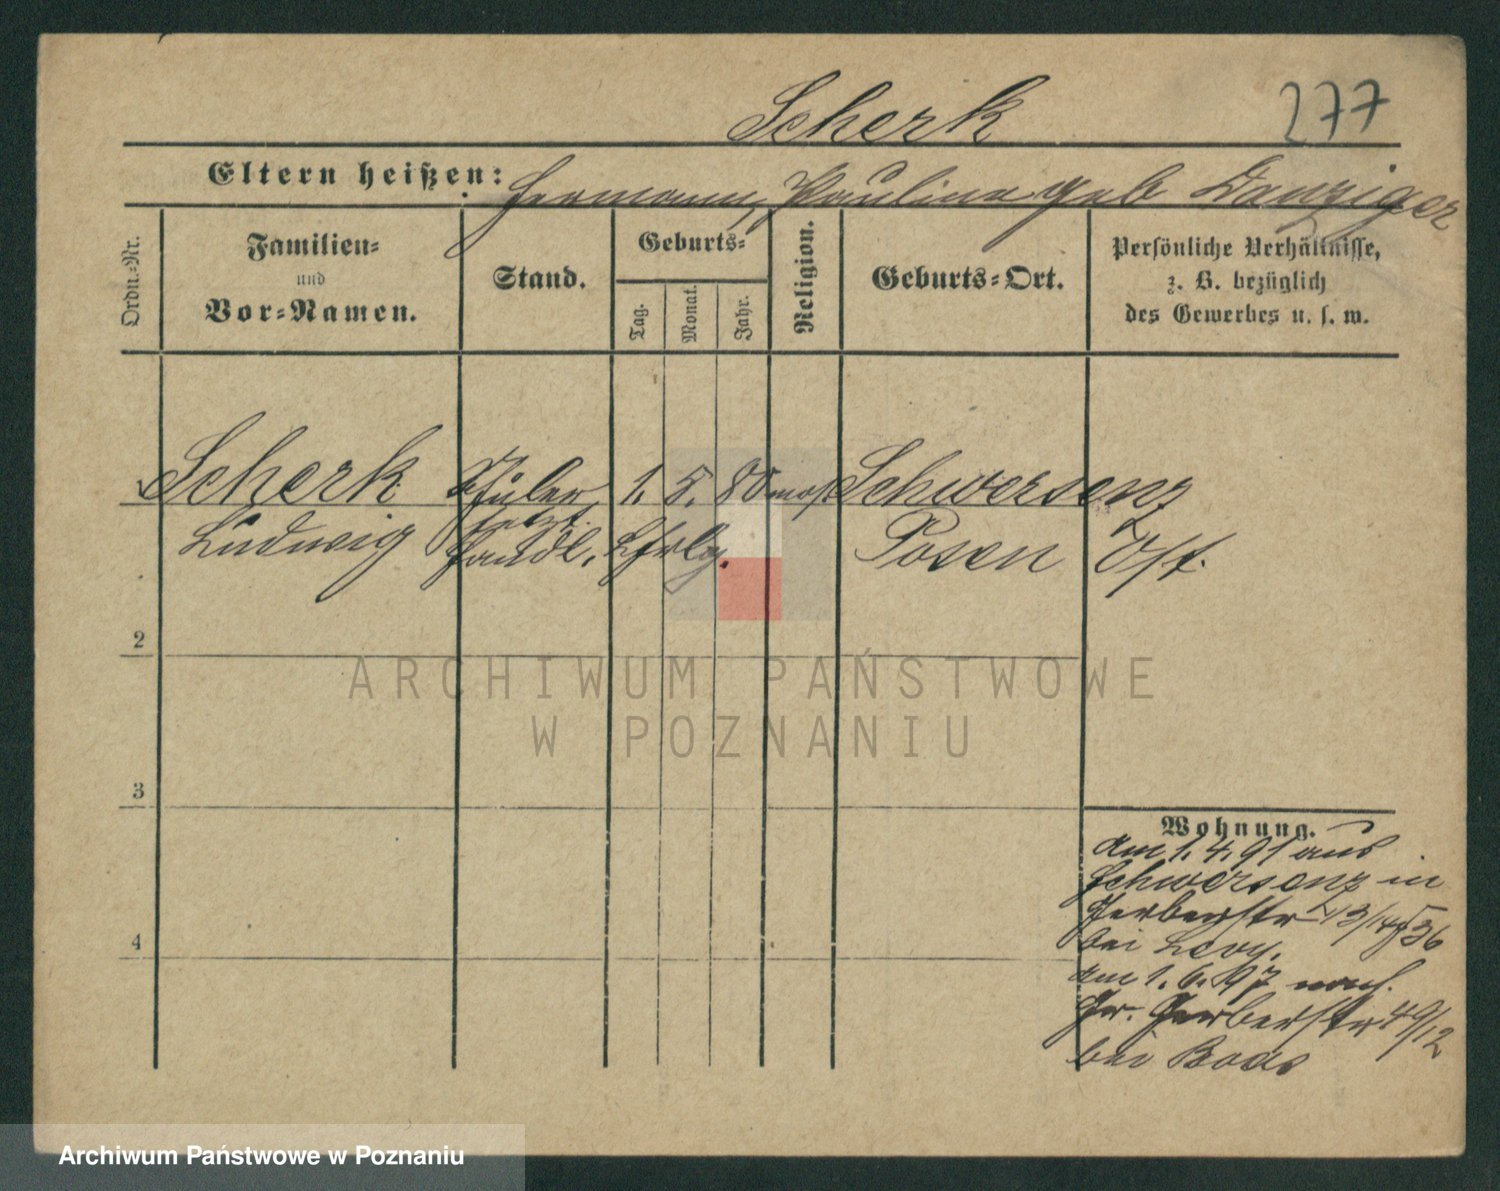 Scherk
277
Eltern heißen: Hermann, Pauline geb Danziger
Ordn.-Nr.
Familien-
und
Vor-Namen.
Stand.
Geburts-
Tag.
Monat.
Jahr.
Religion.
Geburts-Ort.
Persönliche Verhältnisse,
z. B. bezüglich
des Gewerbes u. s. w.
Scherk Schüler 1. 5. 80 mos Schwersenz
Ludwig jetzt
Handl. Lhrlg. Posen Ost.
2
3
4
ARCHIWUM PAŃSTWOWE
W POZNANIU
Wohnung.
am 1. 4. 91 aus
Schwersenz in
Gerberstr 13/14
bei Levy.
am 1. 6. 97 nach
Gr. Gerberstr 49/12
bei
Archiwum Państwowe w Poznaniu